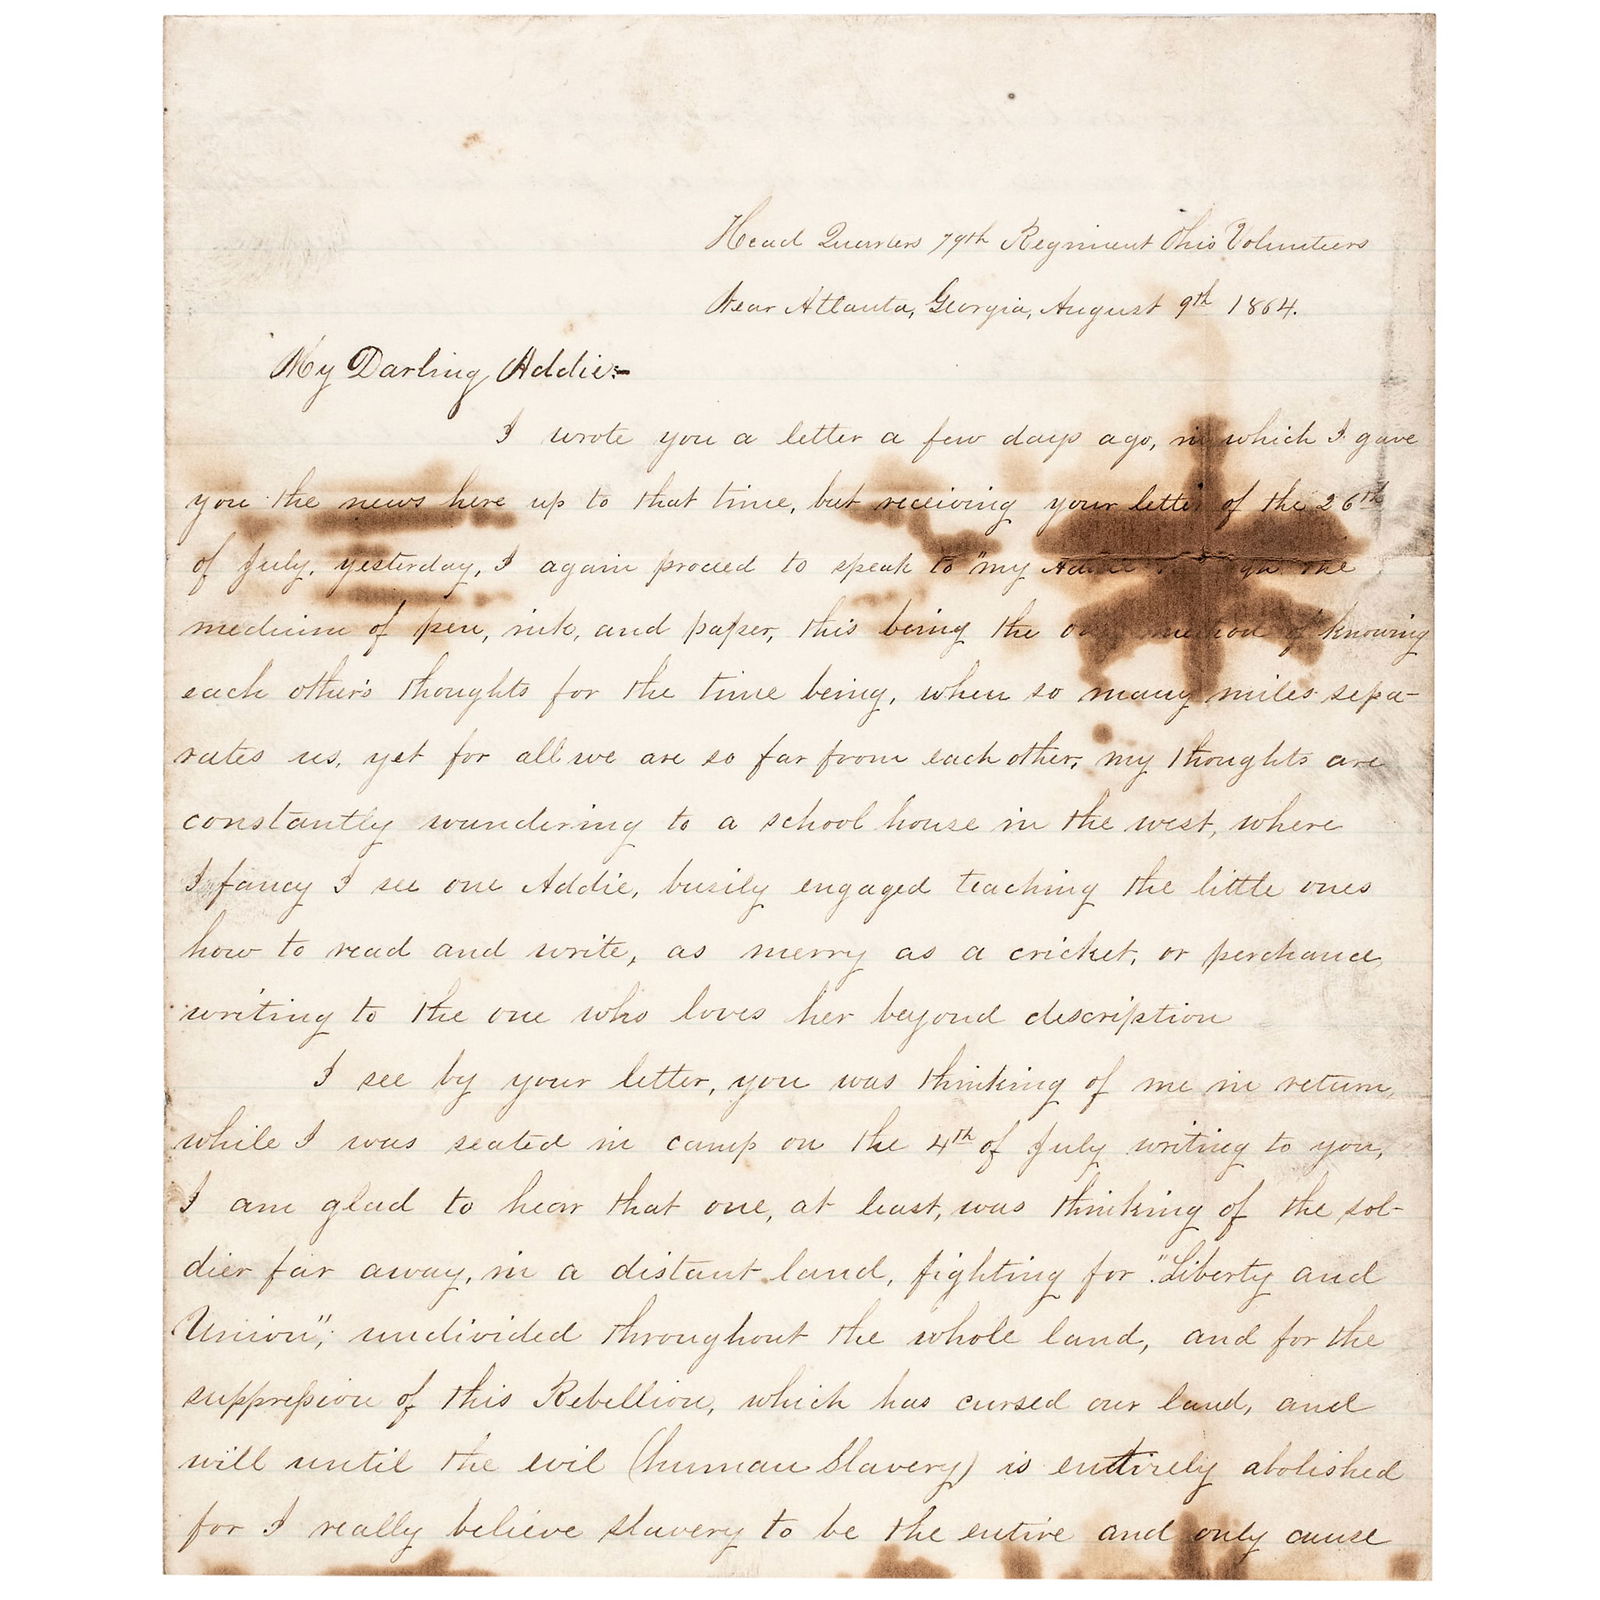 Head Quarters 79th Regiment Ohio Volunteers
Near Atlanta, Georgia, August 9th 1864.
My Darling Addie:-
I wrote you a letter a few days ago, in which I gave
you the news here up to that time, but receiving your letter of the 26th
of July, yesterday, I again proceed to speak to "my Addie the
medium of pen, ink, and paper, this being the only method of knowing
each other's thoughts for the time being, when so many miles sepa-
rates us, yet for all we are so far from each other, my thoughts are
constantly wandering to a school house in the west, where
I fancy I see one Addie, busily engaged teaching the little ones
how to read and write, as merry as a cricket, or perchance
writing to the one who loves her beyond description
I see by your letter, you was thinking of me in return,
while I was seated in camp on the 4th of July writing to you,
I am glad to hear that one, at least, was thinking of the sol-
dier far away, in a distant land, fighting for "Liberty and
Union", undivided throughout the whole land, and for the
suppression of this Rebellion, which has cursed our land, and
will until the evil (human Slavery) is entirely abolished
for I really believe slavery to be the entire and only cause